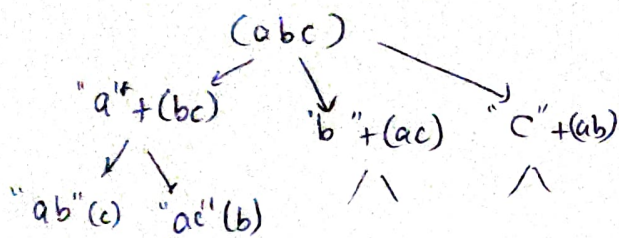 (abc)
"a"+(bc) "b"+(ac) "C"+(ab)
"ab"(c) "ac"(b)